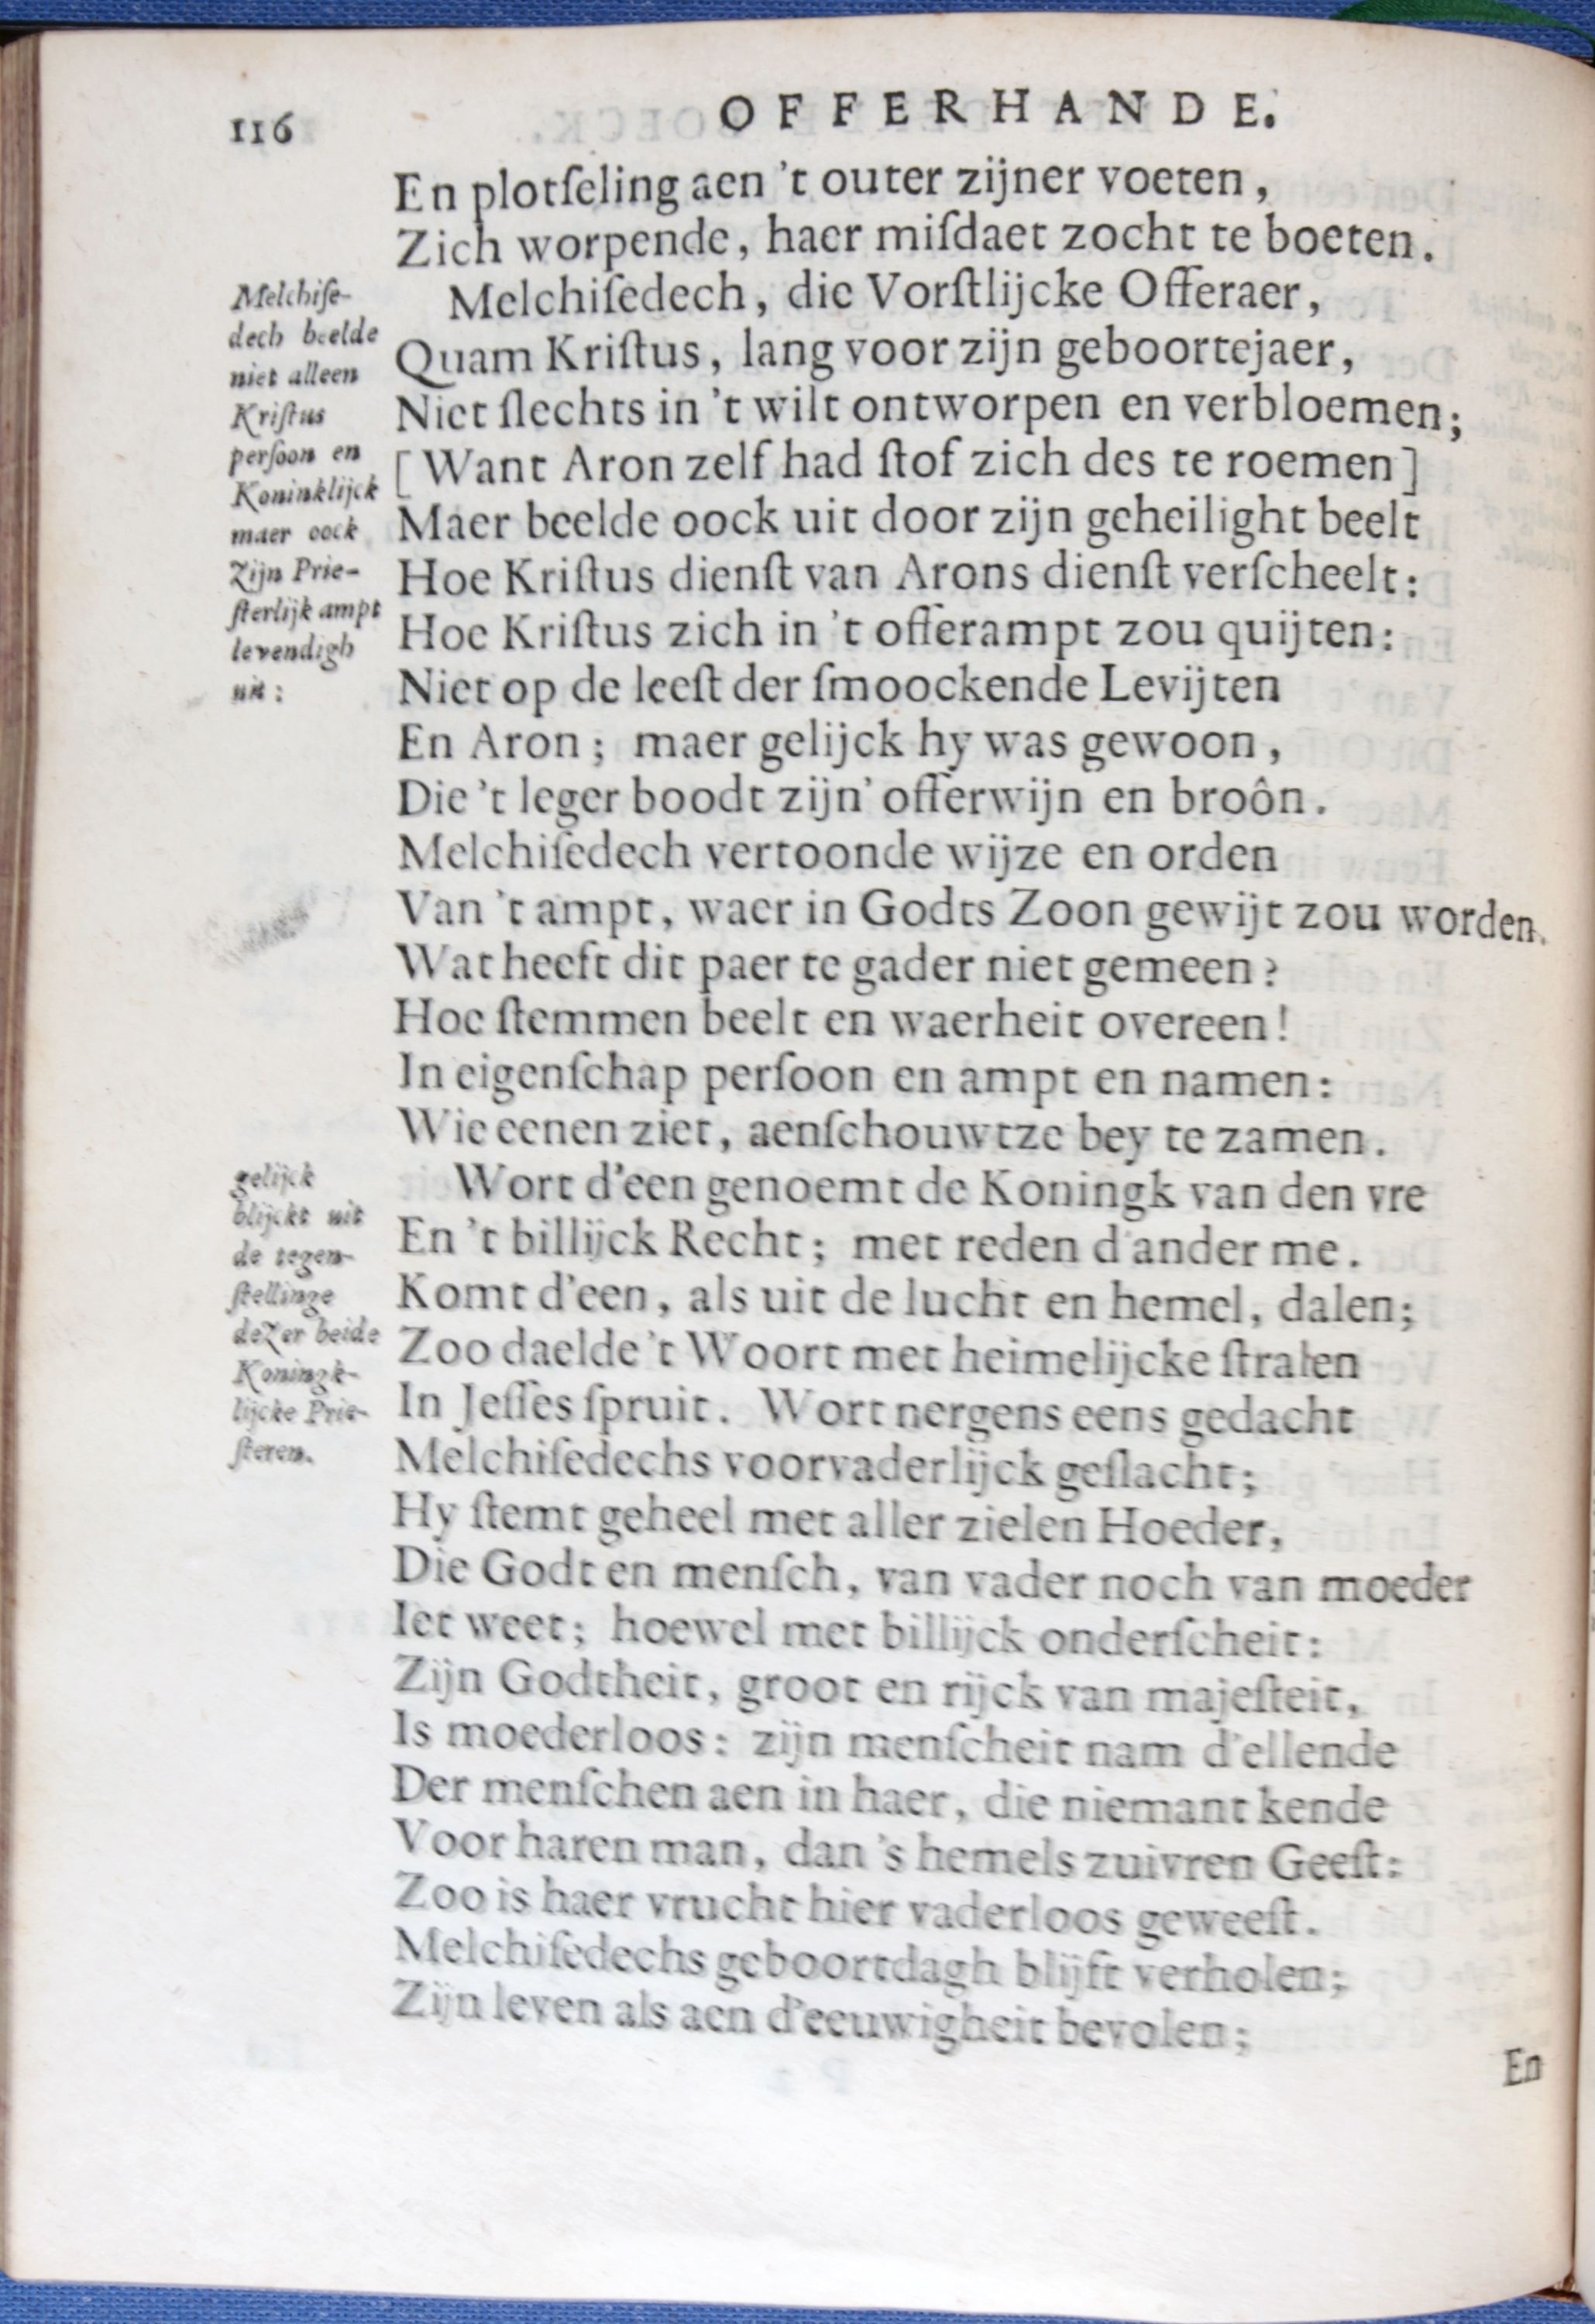 116
OFFERHANDE.
En plotſeling aen 't outer zijner voeten,
Zich worpende, haer miſdaet zocht te boeten.
Melchiſedech, die Vorſtlijcke Offeraer,
Quam Kriſtus, lang voor zijn geboortejaer,
Niet ſlechts in 't wilt ontworpen en verbloemen;
[Want Aron zelf had ſtof zich des te roemen]
Maer beelde oock uit door zijn geheilight beelt
Hoe Kriſtus dienſt van Arons dienſt verſcheelt:
Hoe Kriſtus zich in 't offerampt zou quijten:
Niet op de leeſt der ſmoockende Levijten
En Aron; maer gelijck hy was gewoon,
Die 't leger boodt zijn' offerwijn en broôn.
Melchiſedech vertoonde wijze en orden
Van 't ampt, waer in Godts Zoon gewijt zou worden.
Wat heeft dit paer te gader niet gemeen?
Hoe ſtemmen beelt en waerheit overeen!
In eigenſchap perſoon en ampt en namen:
Wie eenen ziet, aenſchouwtze bey te zamen.
Wort d'een genoemt de Koningk van den vre
En 't billijck Recht; met reden d'ander me.
Komt d'een, als uit de lucht en hemel, dalen;
Zoo daelde 't Woort met heimelijcke ſtralen
In Jeſſes ſpruit. Wort nergens eens gedacht
Melchiſedechs voorvaderlijck geſlacht;
Hy ſtemt geheel met aller zielen Hoeder,
Die Godt en menſch, van vader noch van moeder
Iet weet; hoewel met billijck onderſcheit:
Zijn Godtheit, groot en rijck van majeſteit,
Is moederloos: zijn menſcheit nam d'ellende
Der menſchen aen in haer, die niemant kende
Voor haren man, dan 's hemels zuivren Geeſt:
Zoo is haer vrucht hier vaderloos geweeſt.
Melchiſedechs geboortdagh blijft verholen;
Zijn leven als aen d'eeuwigheit bevolen;
En
Melchiſe-
dech beelde
niet alleen
Kriſtus
perſoon en
Koninklijck
maer oock
zijn Prie-
ſterlijk ampt
levendigh
uit:
gelijck
blijckt uit
de tegen-
ſtellinge
dezer beide
Koningk-
lijcke Prie-
ſteren.